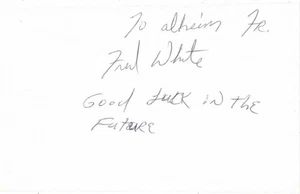 To alheim Jr.
Fred White
Good Luck in the
Future